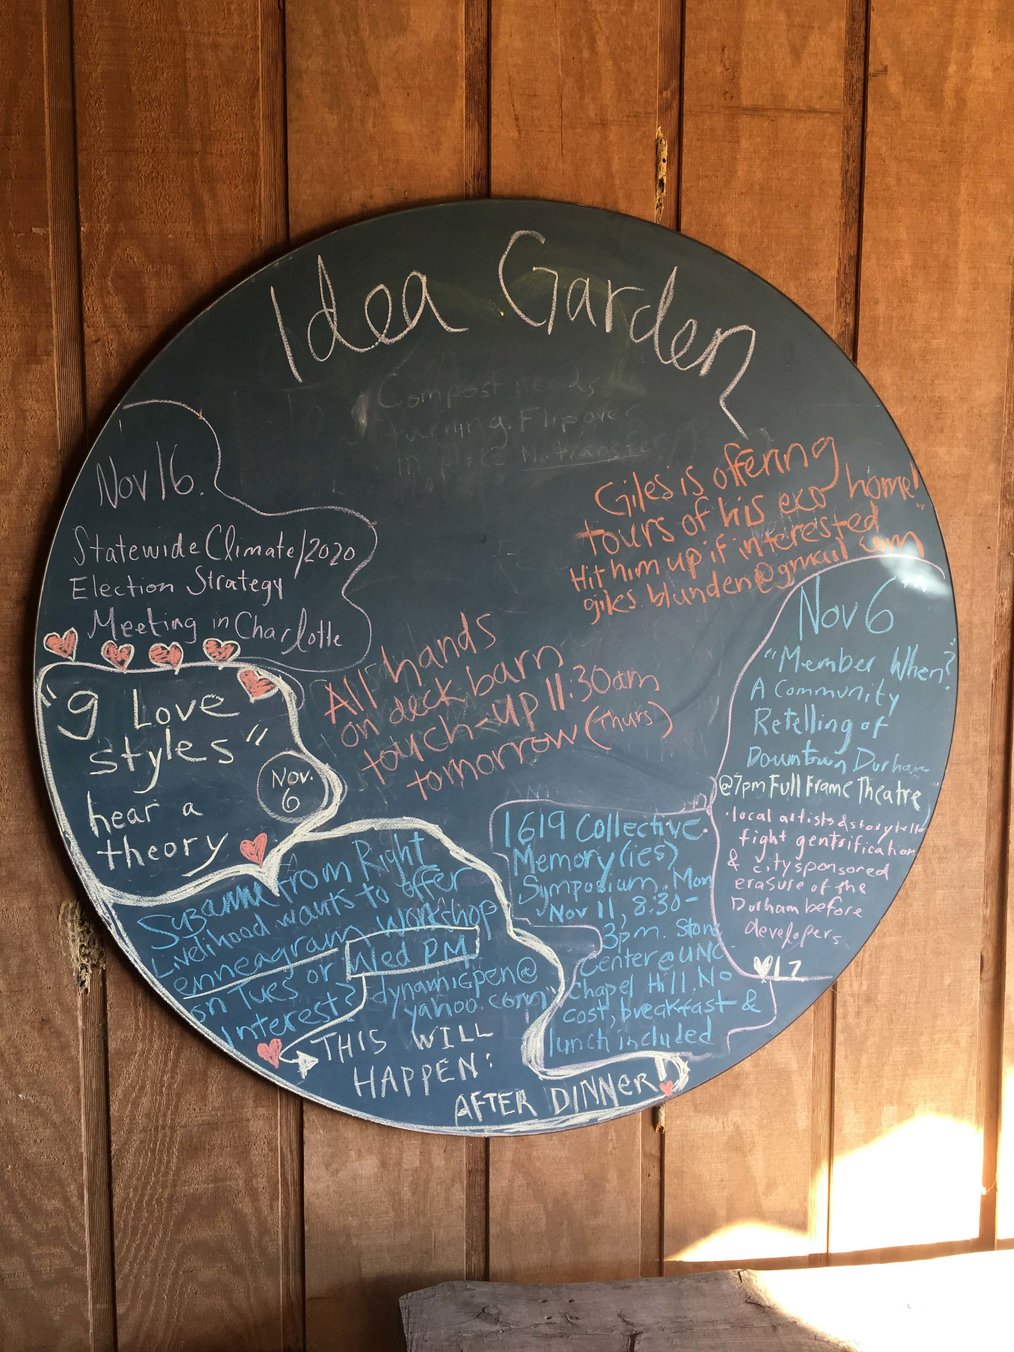 Idea Garden
Compost needs
turning. Flip over
in place No transfer
Nov 16.
Statewide Climate/2020
Election Strategy
Meeting in Charlotte
Giles is offering
tours of his exo home!
Hit him up if interested
giles.blunden@gmail.com
All hands
on deck barn
touch-up 11:30am
tomorrow (Thurs)
"9 Love
styles"
hear a
theory
Nov.
6
Nov 6
"Member When?"
A Community
Retelling of
Downtown Durham
@7pm Full Frame Theatre
local artists & storytell
fight gentrification
& city sponsored
erasure of the
Durham before
developers
LZ
1619 Collective
Memory(ies)
Symposium. Mon
Nov 11, 8:30-
3pm. Stone
Center @ UNC-
Chapel Hill. No
cost, breakfast &
lunch included
Suzanne from Right
Livelihood wants to offer
enneagram workshop
on Tues or Wed PM.
Interest? dynamicpen@
yahoo.com
THIS WILL
HAPPEN:
AFTER DINNER!